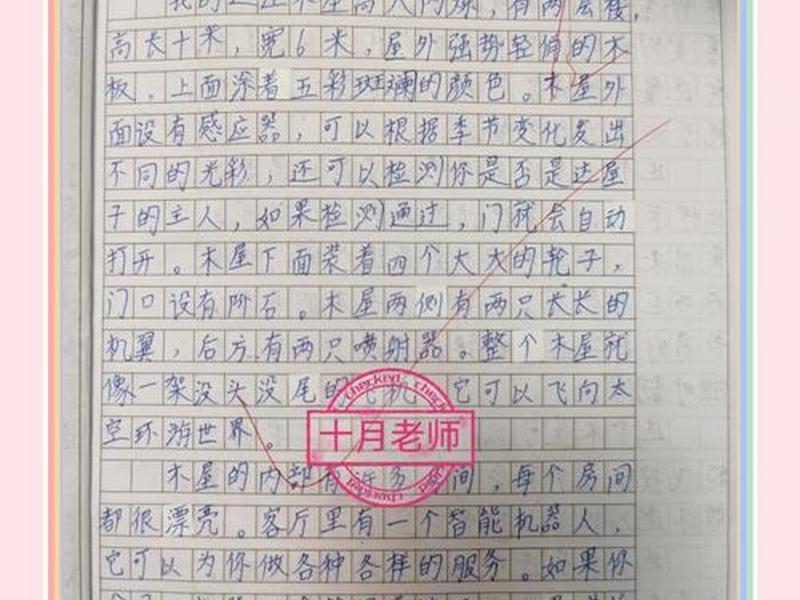 高长十米，宽6米，屋外强势轻俏的木
板，上面涂着五彩斑斓的颜色。木屋外
面设有感应器，可以根据季节变化发出
不同的光彩，还可以检测你是否是达屋
子的主人，如果检测通过，门就会自动
打开。木屋下面装着四个大大的轮子，
门口设有阶石。木屋两侧有两只长长的
机翼，后方有两只喷射器。整个木屋就
像一架没头没尾的飞机，它可以飞向太
空环游世界。
checked
十月老师
木屋的内部有许多房间，每个房间
都很漂亮。客厅里有一个智能机器人，
它可以为你做各种各样的服务。如果你